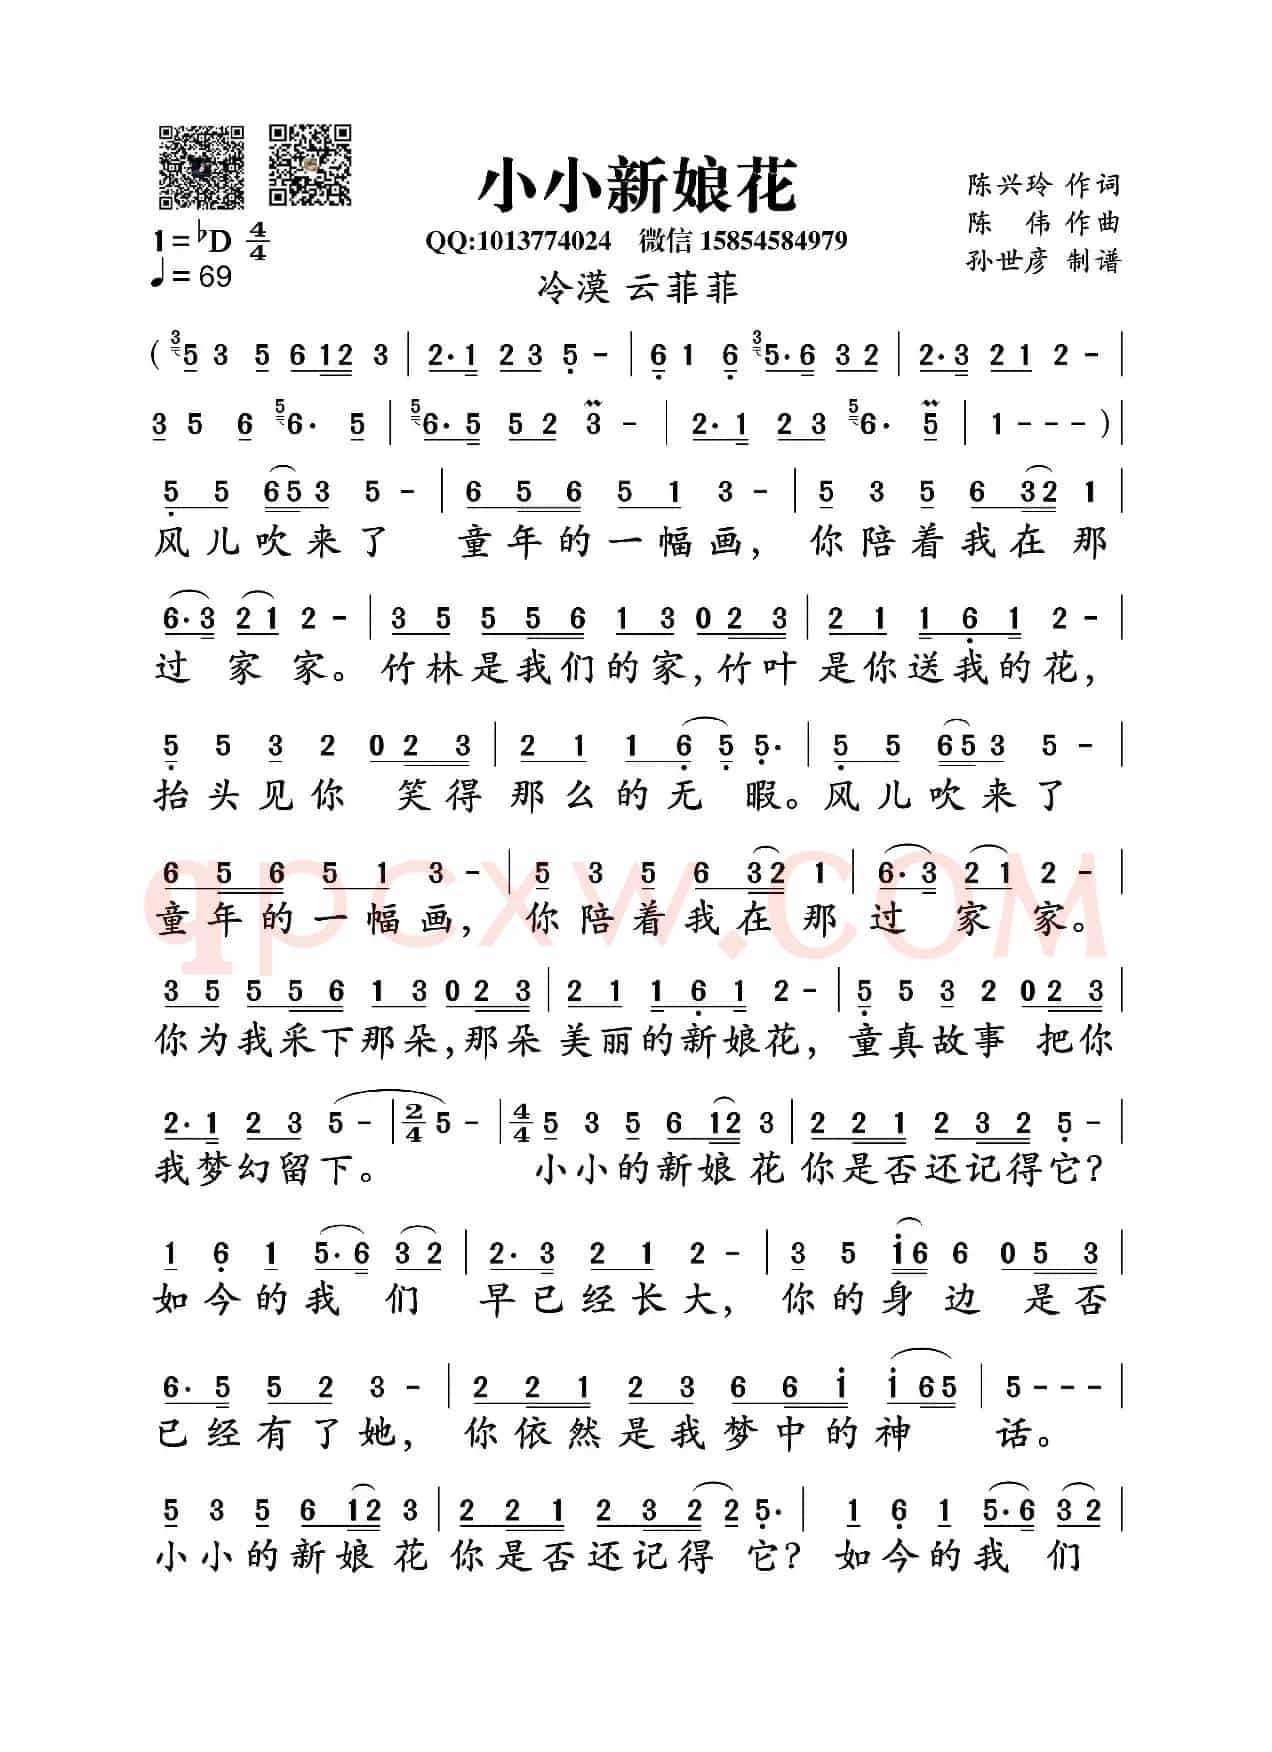 小小新娘花
陈兴玲 作词
1=♭D 4/4
QQ:1013774024 微信 15854584979
陈 伟 作曲
♩=69
冷漠 云菲菲
孙世彦 制谱
( 3 5 3 5 6 1 2 3 | 2· 1 2 3 5 - | 6 1 6 3 5· 6 3 2 | 2· 3 2 1 2 - |
3 5 6 5 6· 5 | 5 6· 5 5 2 3 - | 2· 1 2 3 5 6· 5 | 1 - - - ) |
5 5 6 5 3 5 - | 6 5 6 5 1 3 - | 5 3 5 6 3 2 1 |
风儿吹来了 童年的一幅画, 你陪着我在那
6· 3 2 1 2 - | 3 5 5 5 6 1 3 0 2 3 | 2 1 1 6 1 2 - |
过 家 家。竹林是我们的家,竹叶 是你送我的花,
5 5 3 2 0 2 3 | 2 1 1 6 5 5· | 5 5 6 5 3 5 - |
抬头见你 笑得 那么的无 暇。风儿吹来了
6 5 6 5 1 3 - | 5 3 5 6 3 2 1 | 6· 3 2 1 2 - |
童年的一幅画, 你陪着我在那过 家 家。
qpcxw.com
3 5 5 5 6 1 3 0 2 3 | 2 1 1 6 1 2 - | 5 5 3 2 0 2 3 |
你为我采下那朵,那朵 美丽的新娘花, 童真故事 把你
2· 1 2 3 5 - | 2/4 5 - | 4/4 5 3 5 6 1 2 3 | 2 2 1 2 3 2 5 - |
我梦幻留下。 小小的新娘花 你是否还记得它?
1 6 1 5· 6 3 2 | 2· 3 2 1 2 - | 3 5 i 6 6 0 5 3 |
如今的我 们 早已经长大, 你的身边 是否
6· 5 5 2 3 - | 2 2 1 2 3 6 6 i i 6 5 | 5 - - - |
已经有了她, 你依然是我梦中的神 话。
5 3 5 6 1 2 3 | 2 2 1 2 3 2 2 5· | 1 6 1 5· 6 3 2 |
小小的新娘花 你是否还记得 它? 如今的我 们